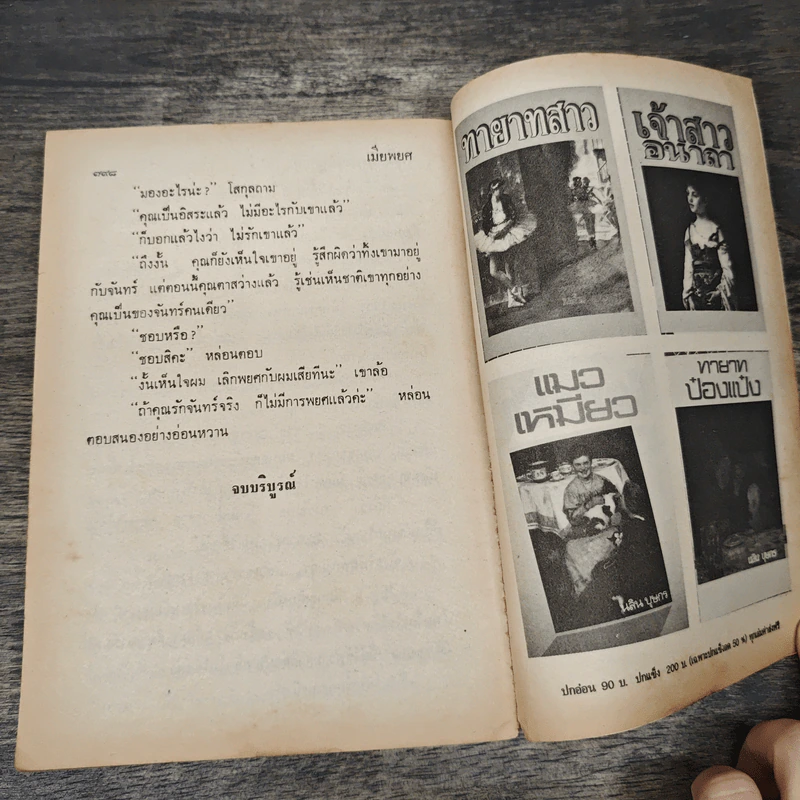 ๑๗๘
เมียพยศ
“มองอะไรน่ะ?” โสกุลถาม
“คุณเป็นอิสระแล้ว ไม่มีอะไรกับเขาแล้ว”
“ก็บอกแล้วไงว่า ไม่รักเขาแล้ว”
“ถึงงั้น คุณก็ยังเห็นใจเขาอยู่ รู้สึกผิดว่าทิ้งเขามาอยู่
กับจันทร์ แต่ตอนนี้คุณตาสว่างแล้ว รู้เช่นเห็นชาติเขาทุกอย่าง
คุณเป็นของจันทร์คนเดียว”
“ชอบหรือ?”
“ชอบสิคะ” หล่อนตอบ
“งั้นเห็นใจผม เลิกพยศกับผมเสียทีนะ” เขาล้อ
“ถ้าคุณรักจันทร์จริง ก็ไม่มีการพยศแล้วค่ะ” หล่อน
ตอบสนองอย่างอ่อนหวาน
จบบริบูรณ์
ทายาทสาว
เจ้าสาว
อนาถา
แมว
เหมียว
นลิน บุษกร
ทายาท
ป๋องแป๋ง
นลิน บุษกร
ปกอ่อน 90 บ. ปกแข็ง 200 บ. (เฉพาะปกแข็งลด 50 %) ทุกเล่มค่าส่งฟรี